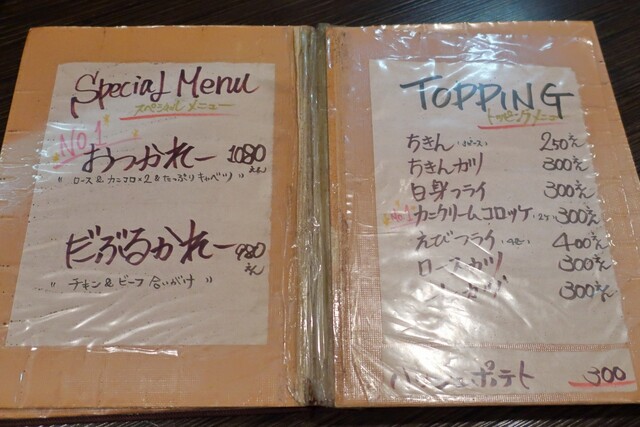 Special Menu
スペシャルメニュー
No.1
おつかれー 1080えん
"ロース&カニコロ×2&たっぷりキャベツ"
だぶるかれー 980えん
"チキン&ビーフ合いがけ"
TOPPING
トッピングメニュー
ちきん 250え
ちきんカツ 300え
白身フライ 300え
No.1 カニクリームコロッケ 300え
えびフライ 400え
ロースカツ 300え
カツ 300え
ポテト 300